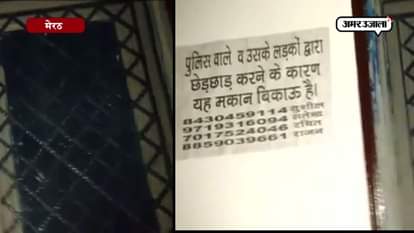 मेरठ
अमर उजाला
पुलिस वाले व उसके लड़कों द्वारा
छेड़छाड़ करने के कारण
यह मकान बिकाऊ है।
8430459114 सुशील
9719316094
7017524046
8859039661 राजन